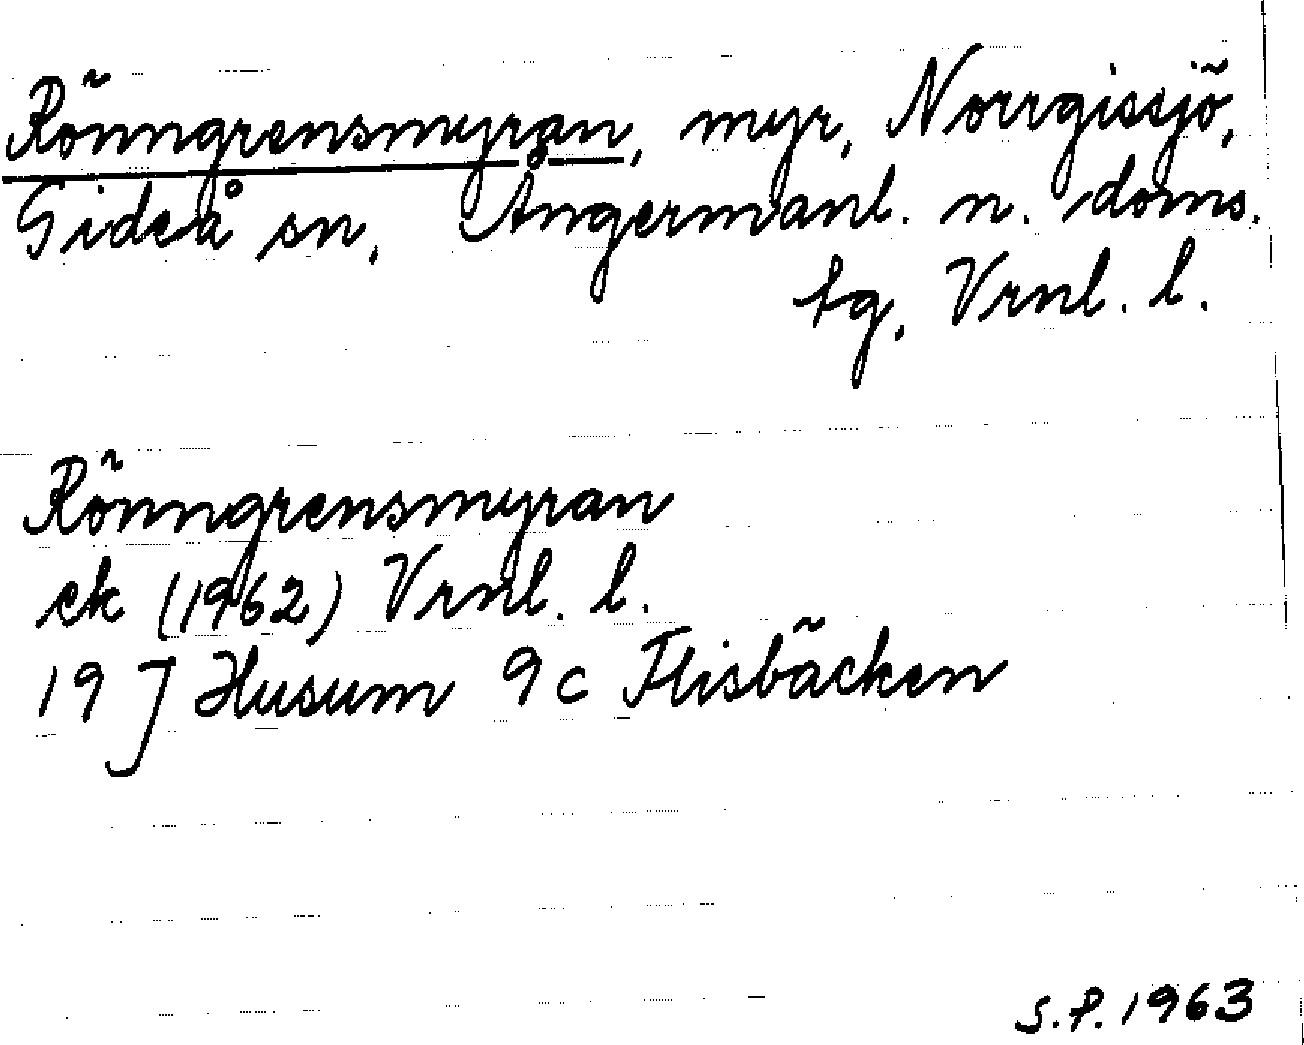 Rönngrensmyran, myr, Norrgissjö,
Gideå sn, Ångermanl. n. doms.
tg, Vrnl. l.
Rönngrensmyran
ek (1962) Vrnl. l.
19 J Husum 9c Flisbäcken
S.P. 1963